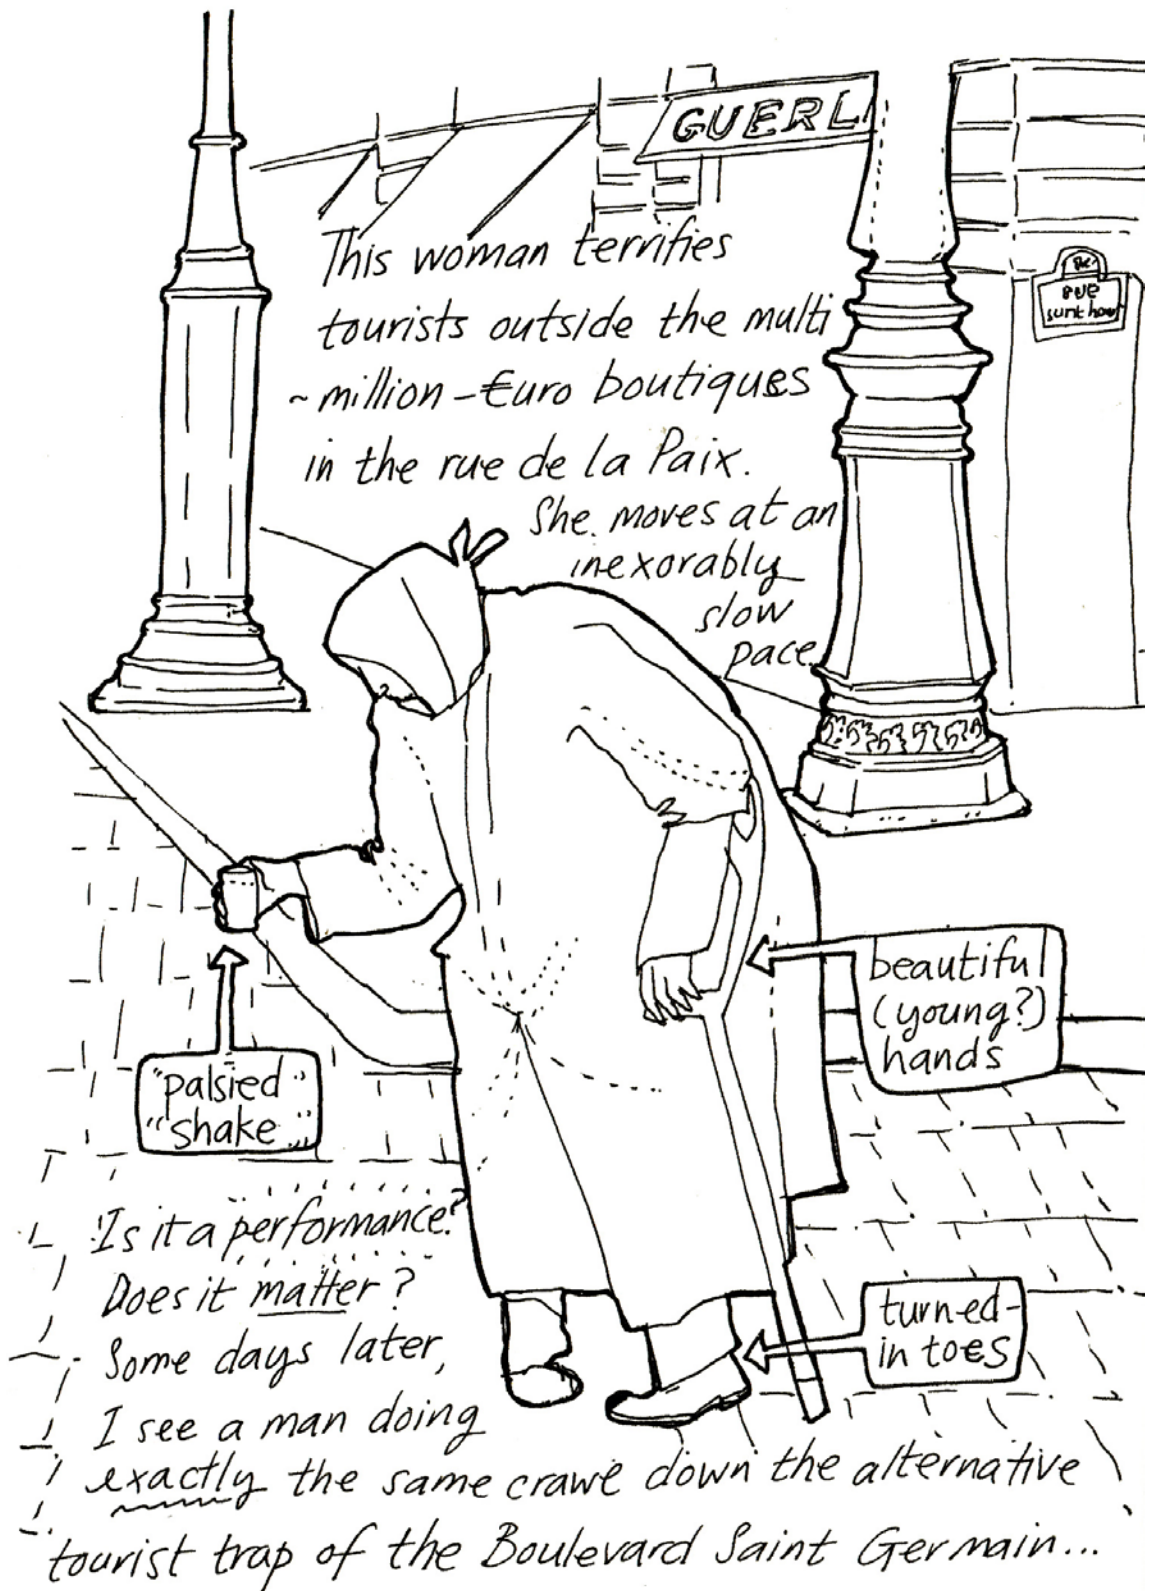 GUERL
This woman terrifies
tourists outside the multi
~million-€uro boutiques
in the rue de la Paix.
She moves at an
inexorably
slow
pace.
RUE
beautiful
(young?)
hands
"palsied"
"shake"
Is it a performance?
Does it matter?
Some days later,
I see a man doing
exactly the same crawl down the alternative
tourist trap of the Boulevard Saint Germain...
turned-
in toes